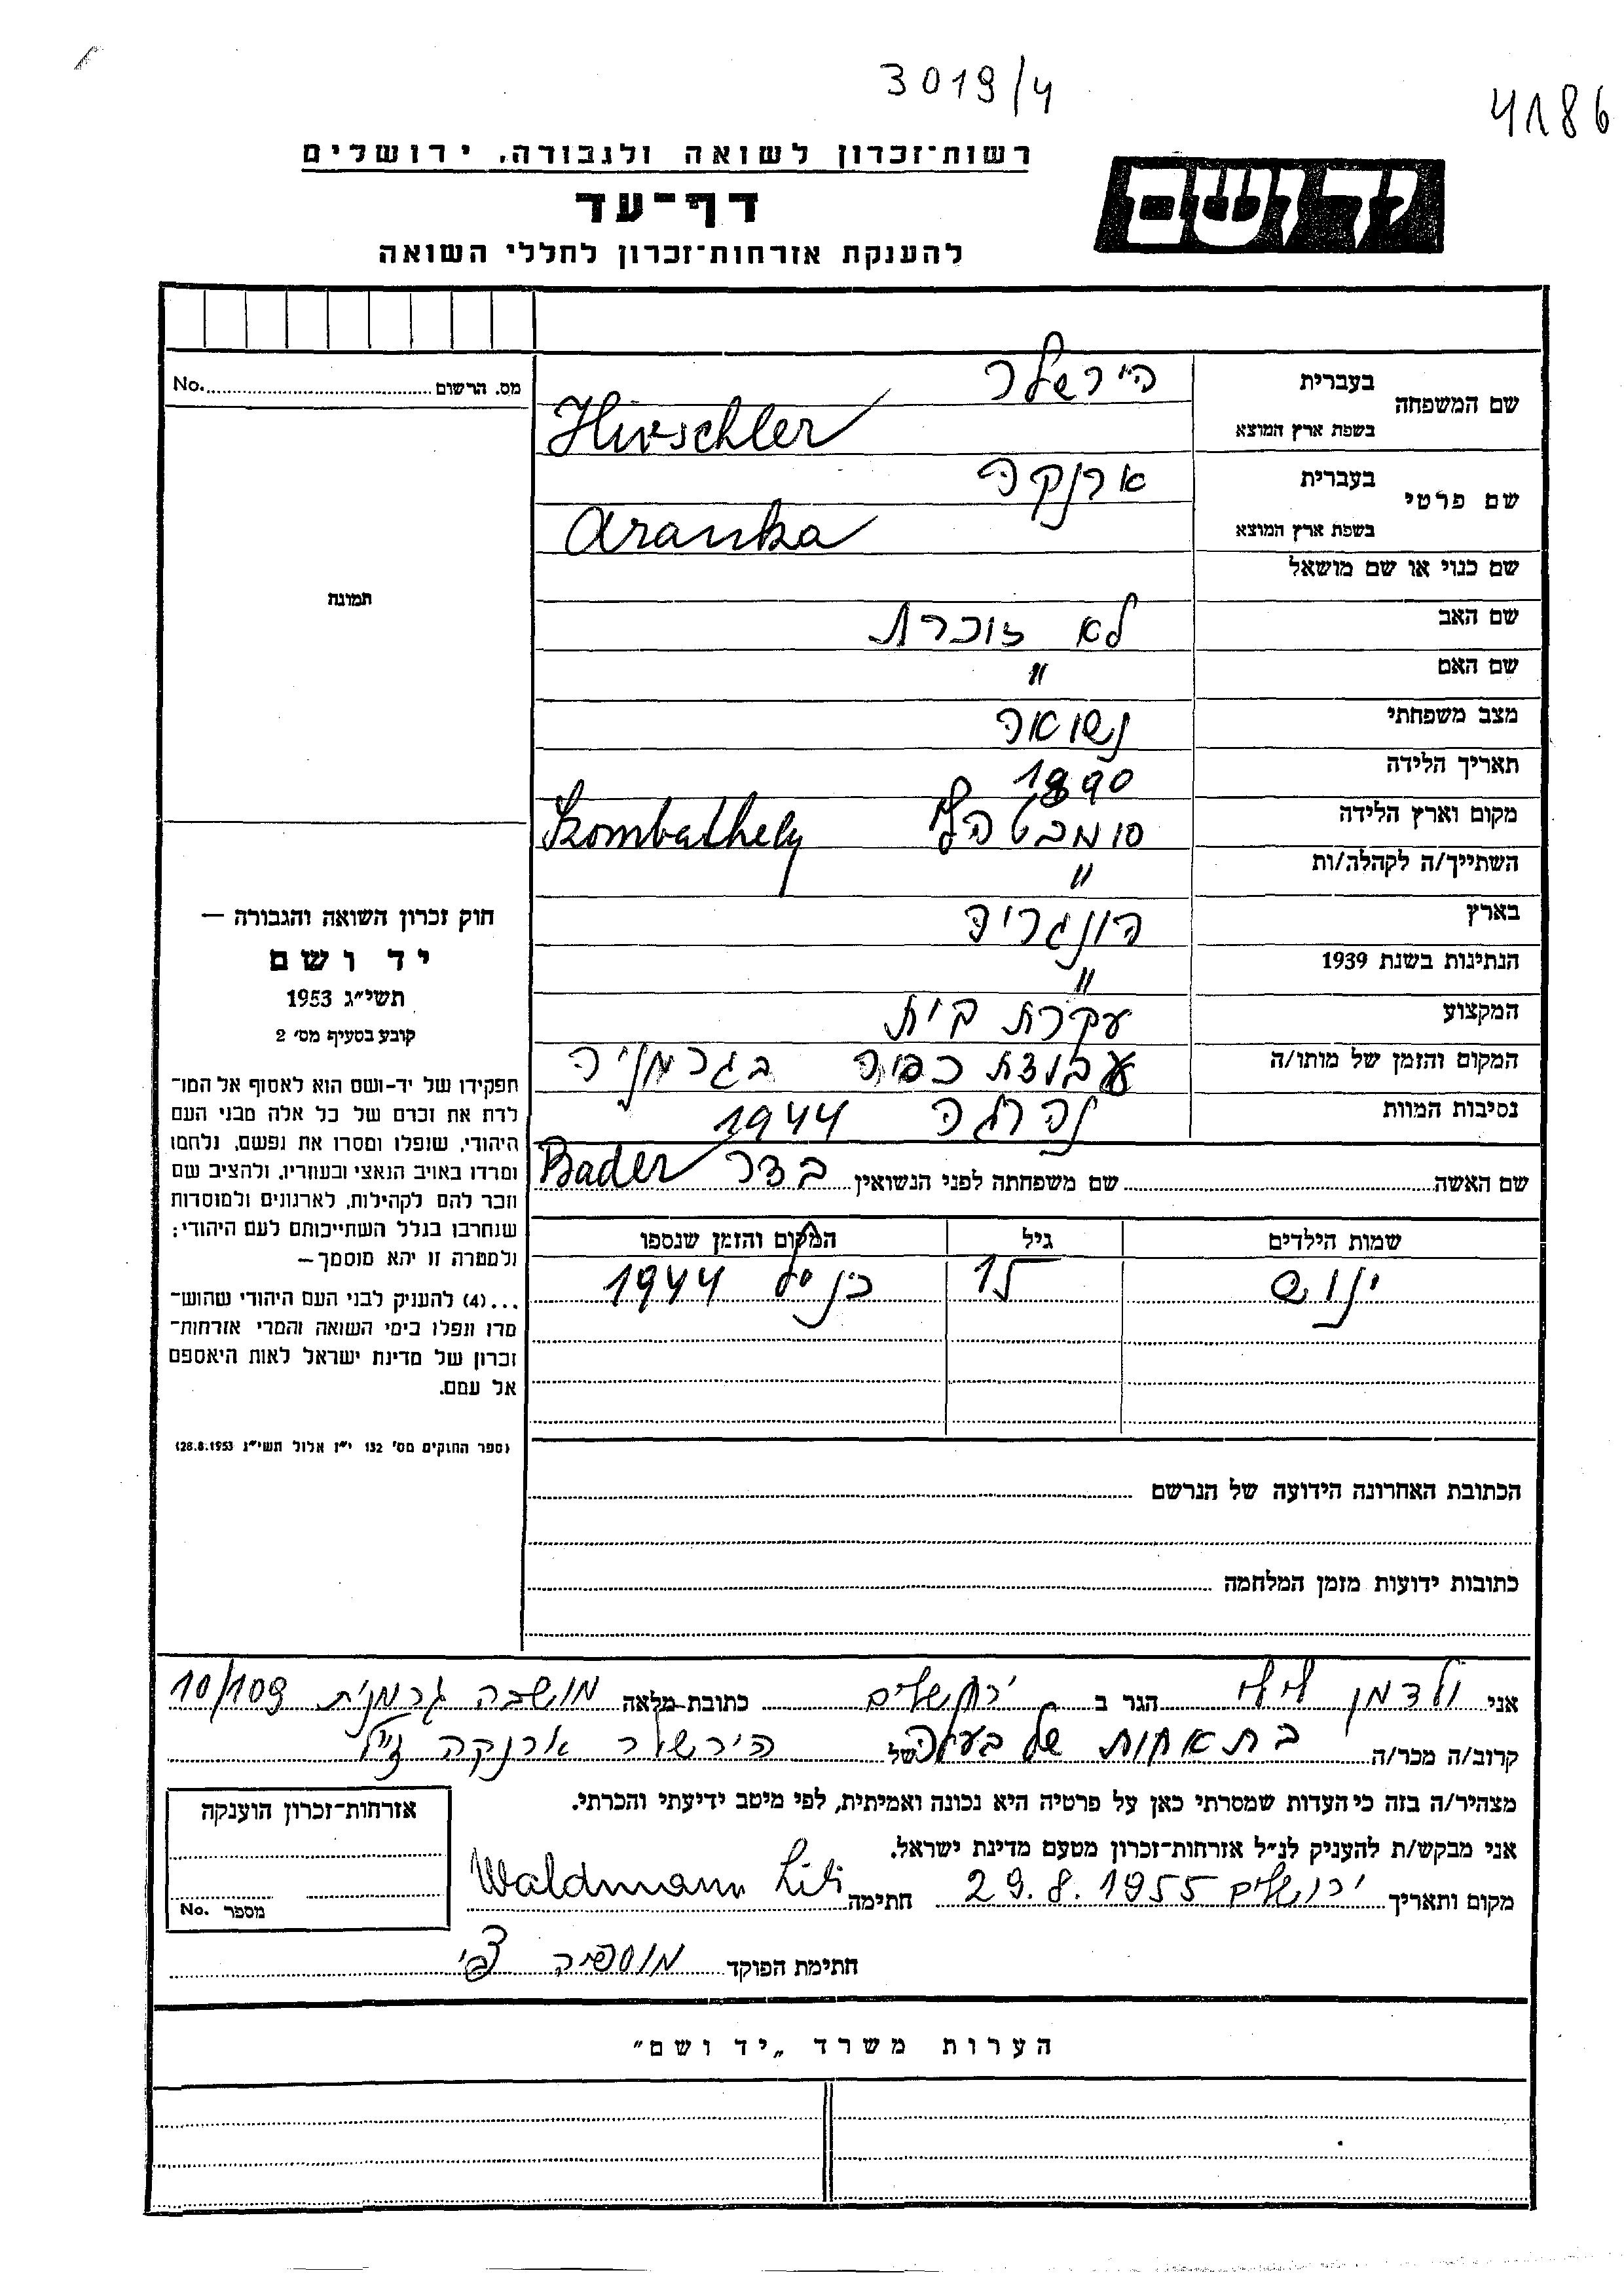 3019/4
4186
רשות־זכרון לשואה ולגבורה, ירושלים
דף־עד
להענקת אזרחות־זכרון לחללי השואה
יד ושם
מס. הרשום No.
תמונה
שם המשפחה
בעברית הירשלר
בשפת ארץ המוצא Hirschler
שם פרטי
בעברית ארנקה
בשפת ארץ המוצא Aranka
שם כנוי או שם מושאל
שם האב לא זוכרת
שם האם "
מצב משפחתי נשואה
תאריך הלידה 1890
מקום וארץ הלידה סומבטהלי Szombathely
השתייך/ה לקהלה/ות "
בארץ הונגריה
הנתינות בשנת 1939 "
המקצוע עקרת בית
המקום והזמן של מותו/ה עבודת כפיה בגרמניה
נסיבות המוות נהרגה 1944
שם האשה שם משפחתה לפני הנשואין בדר Bader
שמות הילדים גיל המקום והזמן שנספו
ינוש 15 כנ"ל 1944
הכתובת האחרונה הידועה של הנרשם
כתובות ידועות מזמן המלחמה
חוק זכרון השואה והגבורה —
יד ושם
תשי״ג 1953
קובע בסעיף מס׳ 2
תפקידו של יד-ושם הוא לאסוף אל המו־
לדת את זכרם של כל אלה מבני העם
היהודי, שנפלו ומסרו את נפשם, נלחמו
ומרדו באויב הנאצי ובעוזריו, ולהציב שם
וזכר להם לקהילות, לארגונים ולמוסדות
שנחרבו בגלל השתייכותם לעם היהודי;
ולמטרה זו יהא מוסמך—
...(4) להעניק לבני העם היהודי שהוש־
מדו ונפלו בימי השואה והמרי אזרחות־
זכרון של מדינת ישראל לאות היאספם
אל עמם.
(ספר החוקים מס׳ 132 י״ז אלול תשי״ג 28.8.1953)
אני ולדמן לילי הגר ב ירושלים כתובת-מלאה מושבה גרמנית 10/109
קרוב/ה מכר/ה בת אחות של בעלה של הירשלר ארנקה ז"ל
מצהיר/ה בזה כי העדות שמסרתי כאן על פרטיה היא נכונה ואמיתית, לפי מיטב ידיעתי והכרתי.
אני מבקש/ת להעניק לנ״ל אזרחות־זכרון מטעם מדינת ישראל.
מקום ותאריך ירושלים 29.8.1955 חתימה Waldmann Lili
חתימת הפוקד
אזרחות־זכרון הוענקה
מספר No.
הערות משרד „יד ושם״